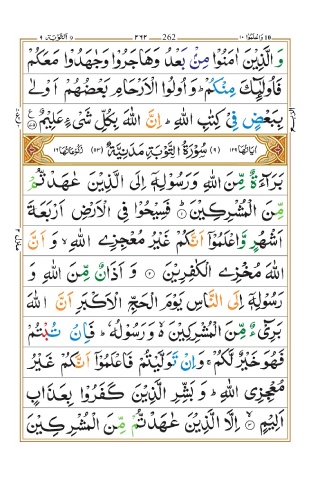 التوبة ٩ ٢٦٢ 262 واعلموا ١٠
وَالَّذِيْنَ اٰمَنُوْا مِنْۢ بَعْدُ وَهَاجَرُوْا وَجٰهَدُوْا مَعَكُمْ
فَاُولٰٓئِكَ مِنْكُمْ ؕ وَاُولُوا الْاَرْحَامِ بَعْضُهُمْ اَوْلٰى
بِبَعْضٍ فِيْ كِتٰبِ اللّٰهِ ؕ اِنَّ اللّٰهَ بِكُلِّ شَيْءٍ عَلِيْمٌ ۟
اٰيَاتُهَا ١٢٩ (٩) سُوْرَةُ التَّوْبَةِ مَدَنِيَّةٌ (١١٣) رُكُوْعَاتُهَا ١٦
بَرَآءَةٌ مِّنَ اللّٰهِ وَرَسُوْلِهٖۤ اِلَى الَّذِيْنَ عٰهَدْتُّمْ
مِّنَ الْمُشْرِكِيْنَ ۟ فَسِيْحُوْا فِي الْاَرْضِ اَرْبَعَةَ
اَشْهُرٍ وَّاعْلَمُوْۤا اَنَّكُمْ غَيْرُ مُعْجِزِي اللّٰهِ ۙ وَاَنَّ
اللّٰهَ مُخْزِي الْكٰفِرِيْنَ ۟ وَاَذَانٌ مِّنَ اللّٰهِ وَ
رَسُوْلِهٖۤ اِلَى النَّاسِ يَوْمَ الْحَجِّ الْاَكْبَرِ اَنَّ اللّٰهَ
بَرِيْٓءٌ مِّنَ الْمُشْرِكِيْنَ ۙ وَرَسُوْلُهٗ ؕ فَاِنْ تُبْتُمْ
فَهُوَ خَيْرٌ لَّكُمْ ۚ وَاِنْ تَوَلَّيْتُمْ فَاعْلَمُوْۤا اَنَّكُمْ غَيْرُ
مُعْجِزِي اللّٰهِ ؕ وَبَشِّرِ الَّذِيْنَ كَفَرُوْا بِعَذَابٍ
اَلِيْمٍ ۟ اِلَّا الَّذِيْنَ عٰهَدْتُّمْ مِّنَ الْمُشْرِكِيْنَ